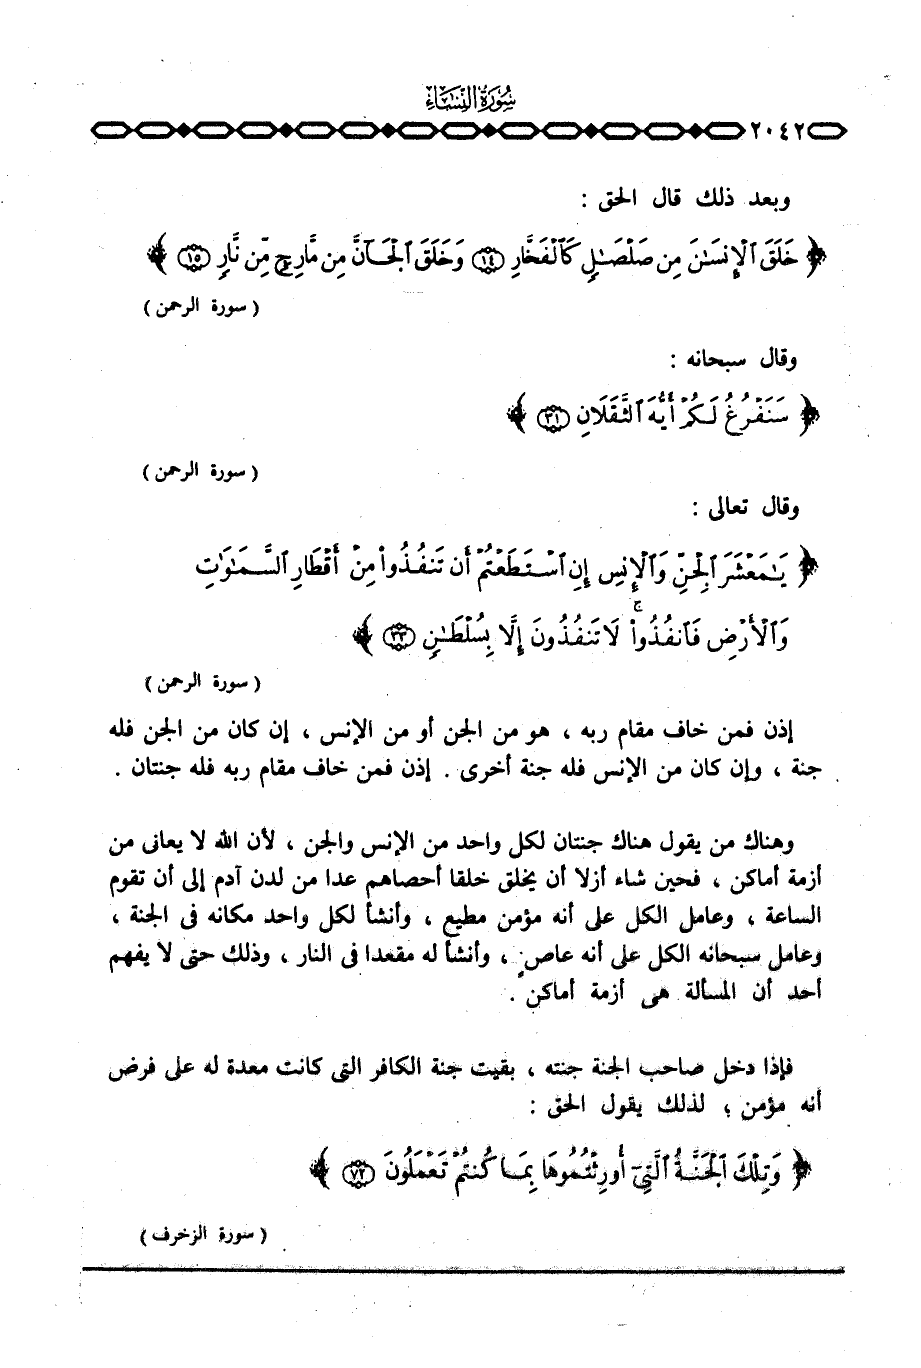 سُورَةُ النِّسَاءِ
٢٠٤٢
وبعد ذلك قال الحق :
﴿ خَلَقَ ٱلْإِنسَٰنَ مِن صَلْصَٰلٍ كَٱلْفَخَّارِ ١٤ وَخَلَقَ ٱلْجَآنَّ مِن مَّارِجٍ مِّن نَّارٍ ١٥ ﴾
( سورة الرحمن )
وقال سبحانه :
﴿ سَنَفْرُغُ لَكُمْ أَيُّهَ ٱلثَّقَلَانِ ٣١ ﴾
( سورة الرحمن )
وقال تعالى :
﴿ يَٰمَعْشَرَ ٱلْجِنِّ وَٱلْإِنسِ إِنِ ٱسْتَطَعْتُمْ أَن تَنفُذُوا۟ مِنْ أَقْطَارِ ٱلسَّمَٰوَٰتِ
وَٱلْأَرْضِ فَٱنفُذُوا۟ ۚ لَا تَنفُذُونَ إِلَّا بِسُلْطَٰنٍ ٣٣ ﴾
( سورة الرحمن )
إذن فمن خاف مقام ربه ، هو من الجن أو من الإنس ، إن كان من الجن فله
جنة ، وإن كان من الإنس فله جنة أخرى . إذن فمن خاف مقام ربه فله جنتان .
وهناك من يقول هناك جنتان لكل واحد من الإنس والجن ، لأن الله لا يعانى من
أزمة أماكن ، فحين شاء أزلا أن يخلق خلقا أحصاهم عدا من لدن آدم إلى أن تقوم
الساعة ، وعامل الكل على أنه مؤمن مطيع ، وأنشأ لكل واحد مكانه فى الجنة ،
وعامل سبحانه الكل على أنه عاصٍ ، وأنشأ له مقعدا فى النار ، وذلك حتى لا يفهم
أحد أن المسألة هى أزمة أماكن .
فإذا دخل صاحب الجنة جنته ، بقيت جنة الكافر التى كانت معدة له على فرض
أنه مؤمن ؛ لذلك يقول الحق :
﴿ وَتِلْكَ ٱلْجَنَّةُ ٱلَّتِىٓ أُورِثْتُمُوهَا بِمَا كُنتُمْ تَعْمَلُونَ ٧٢ ﴾
( سورة الزخرف )